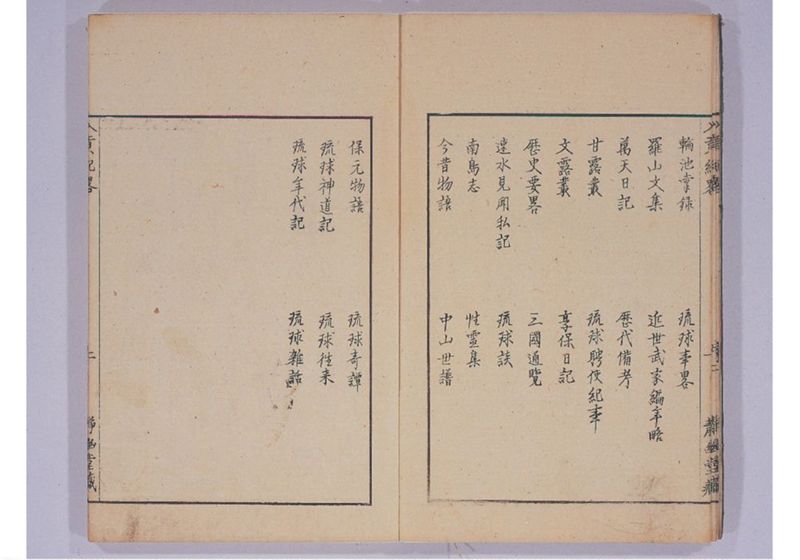 輪池掌録 琉球事畧
羅山文集 近世武家編年略
萬天日記 歴代備考
甘露叢 琉球聘使紀事
文露叢 享保日記
歴史要畧 三國通覧
速水見聞私記 琉球談
南島志 性霊集
今昔物語 中山世譜
保元物語 琉球奇譚
琉球神道記 琉球往来
琉球年代記 琉球雑話